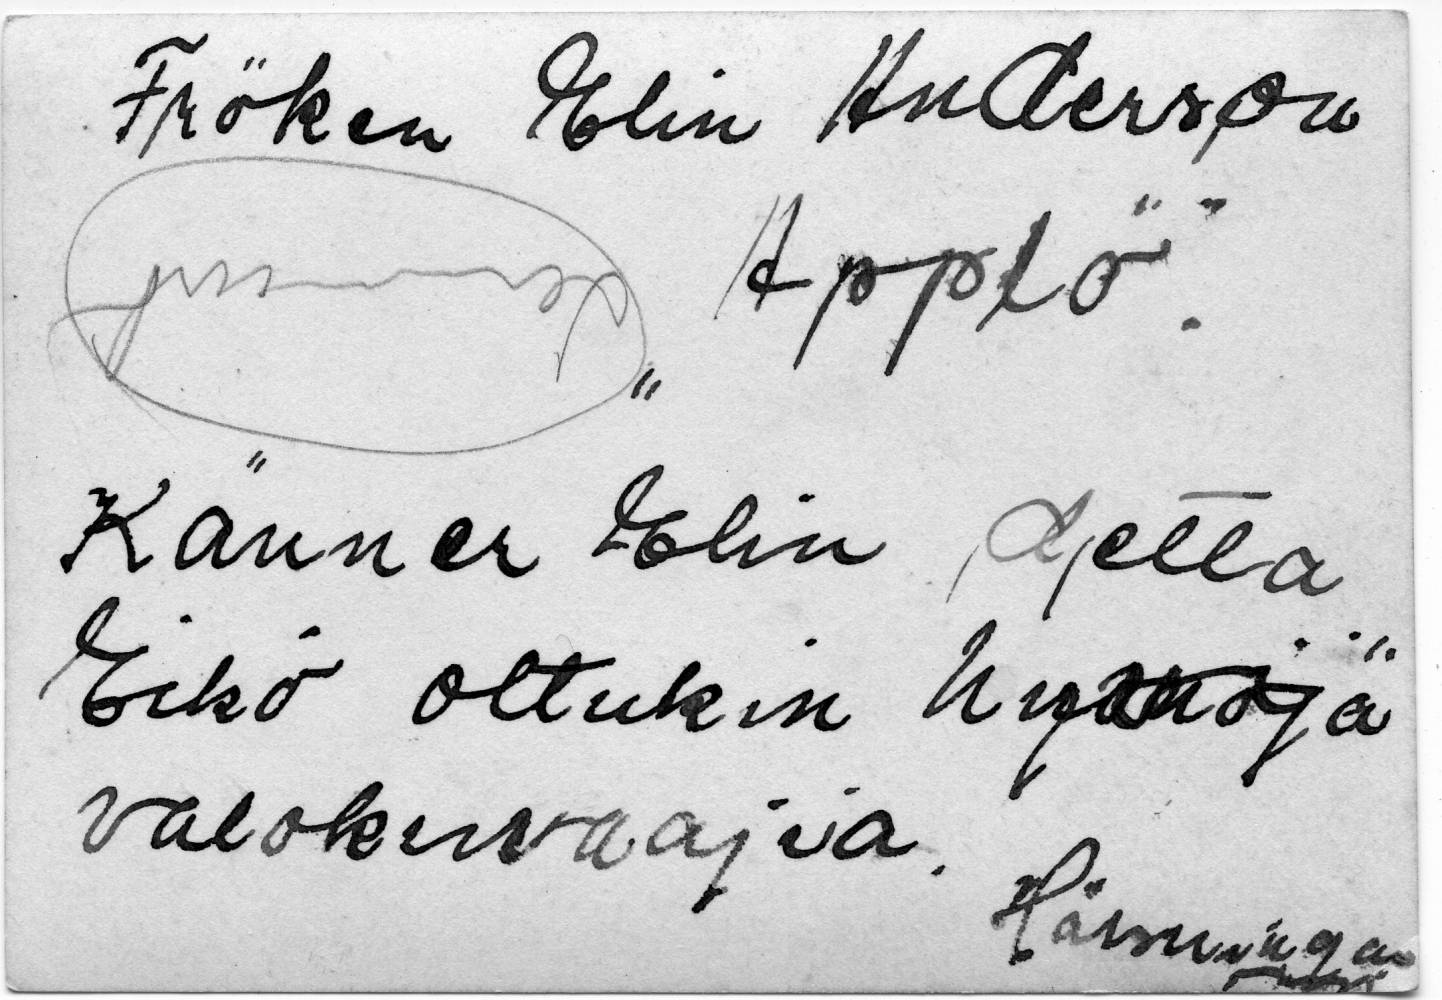 Fröken Elin Anderson
Applö.
Känner Elin detta
Eikö ollukin hyviä
valokuvaajia.
Hälsningar